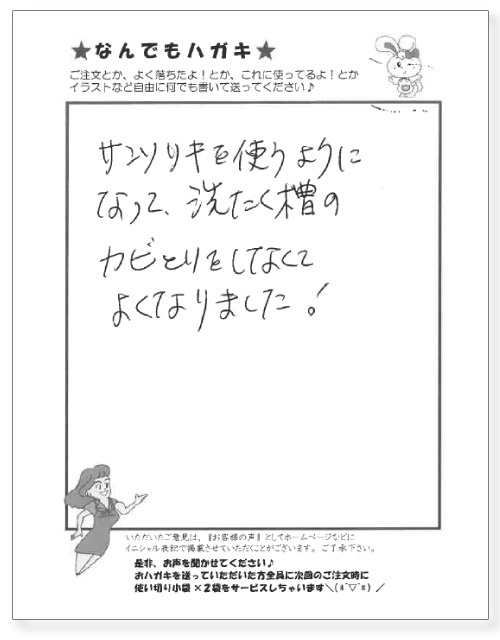 ★なんでもハガキ★
ご注文とか、よく落ちたよ！とか、これに使ってるよ！とか
イラストなど自由に何でも書いて送ってください♪
サンソリキを使うように
なって、洗たく槽の
カビとりをしなくて
よくなりました！
いただいたご意見は、『お客様の声』としてホームページなどに
イニシャル表記で掲載させていただくことがございます。ご了承下さい。
是非、お声を聞かせてください♪
おハガキを送っていただいた方全員に次回のご注文時に
使い切り小袋×2袋をサービスしちゃいます＼(*ﾟ▽ﾟ*)／